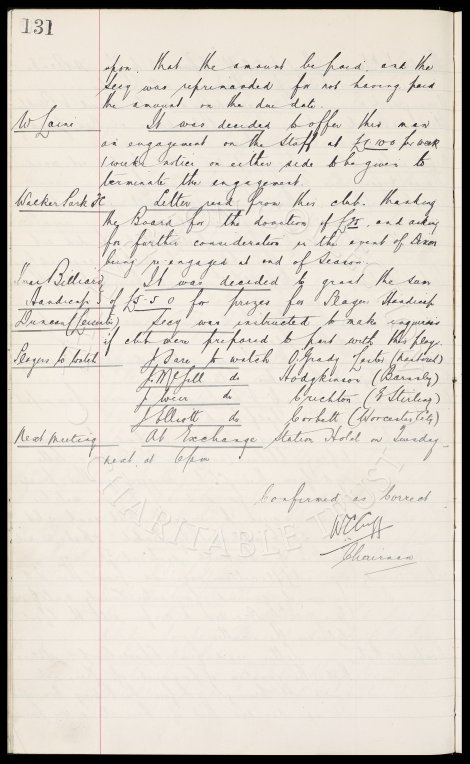 131
upon. that the amount be paid. and the
Secy was reprimanded for not having paid
the amount on the due date.
W It was decided to offer this man
an engagement on the Staff at per week
1 weeks notice on either side to be given to
terminate the engagement.
Walker Park FC Letter read from this club. thanking
the Board for the donation of and asking
for further consideration in the event of Dixon
being re-engaged at end of season.
Billiard It was decided to grant the sum
Handicap of £5-5-0 for prizes for Players Handicap
Duncan (Leicester) Secy was instructed to make inquiries
if club were prepared to part with this player.
Players to watch J Dare to watch O'Grady
J. McGill do Hodgkinson (Barnsley)
J Weir do Crichton (E Stirling)
J Elliott do Corbett (Worcester City)
Next Meeting At Exchange Station Hotel on Tuesday
next. at 6pm
Confirmed as Correct
W C Cuff
Chairman
CHARITABLE TRUST